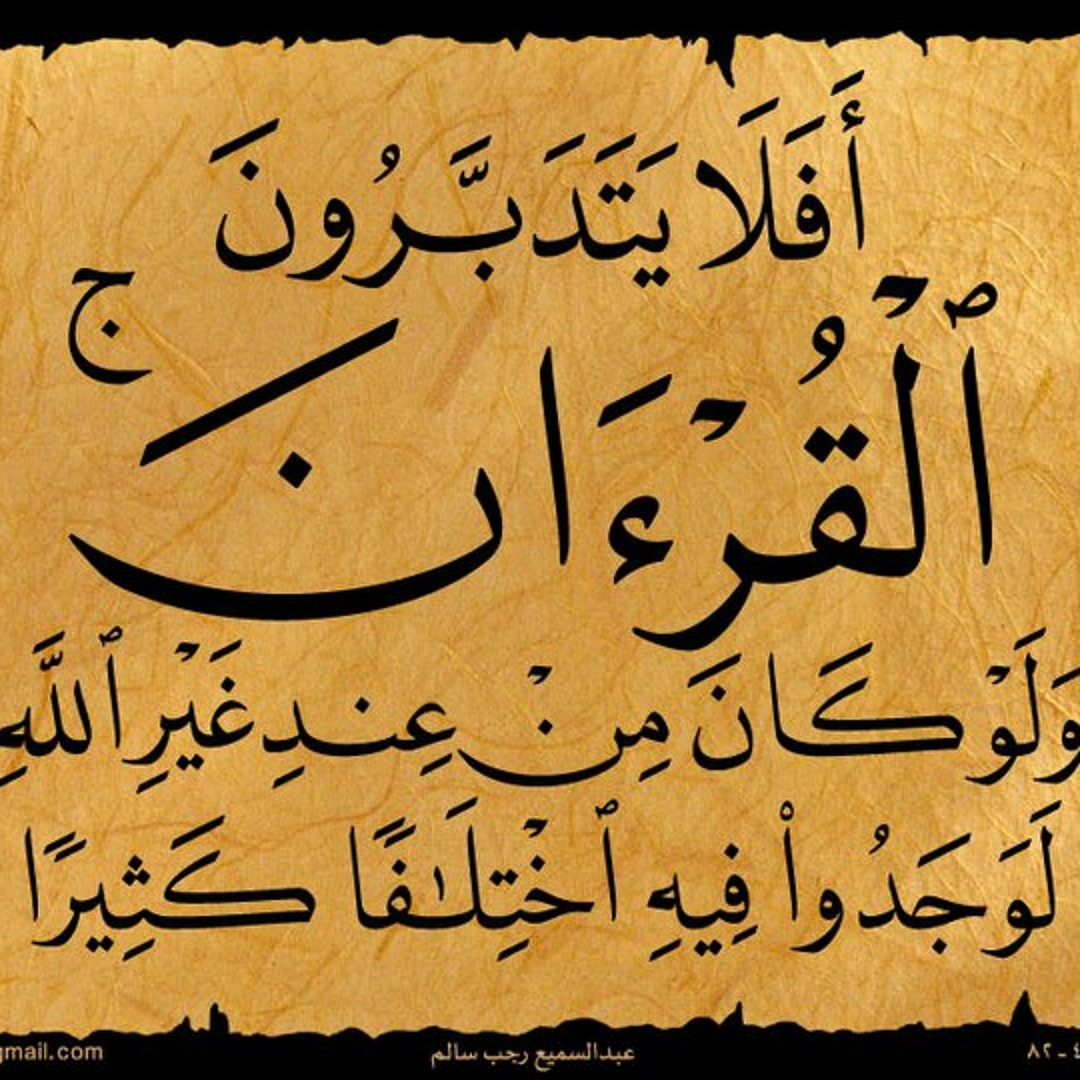 أَفَلَا يَتَدَبَّرُونَ
ٱلْقُرْءَانَ ۚ
وَلَوْ كَانَ مِنْ عِندِ غَيْرِ ٱللَّهِ
لَوَجَدُوا۟ فِيهِ ٱخْتِلَـٰفًا كَثِيرًا
gmail.com عبدالسميع رجب سالم ٤ - ٨٢